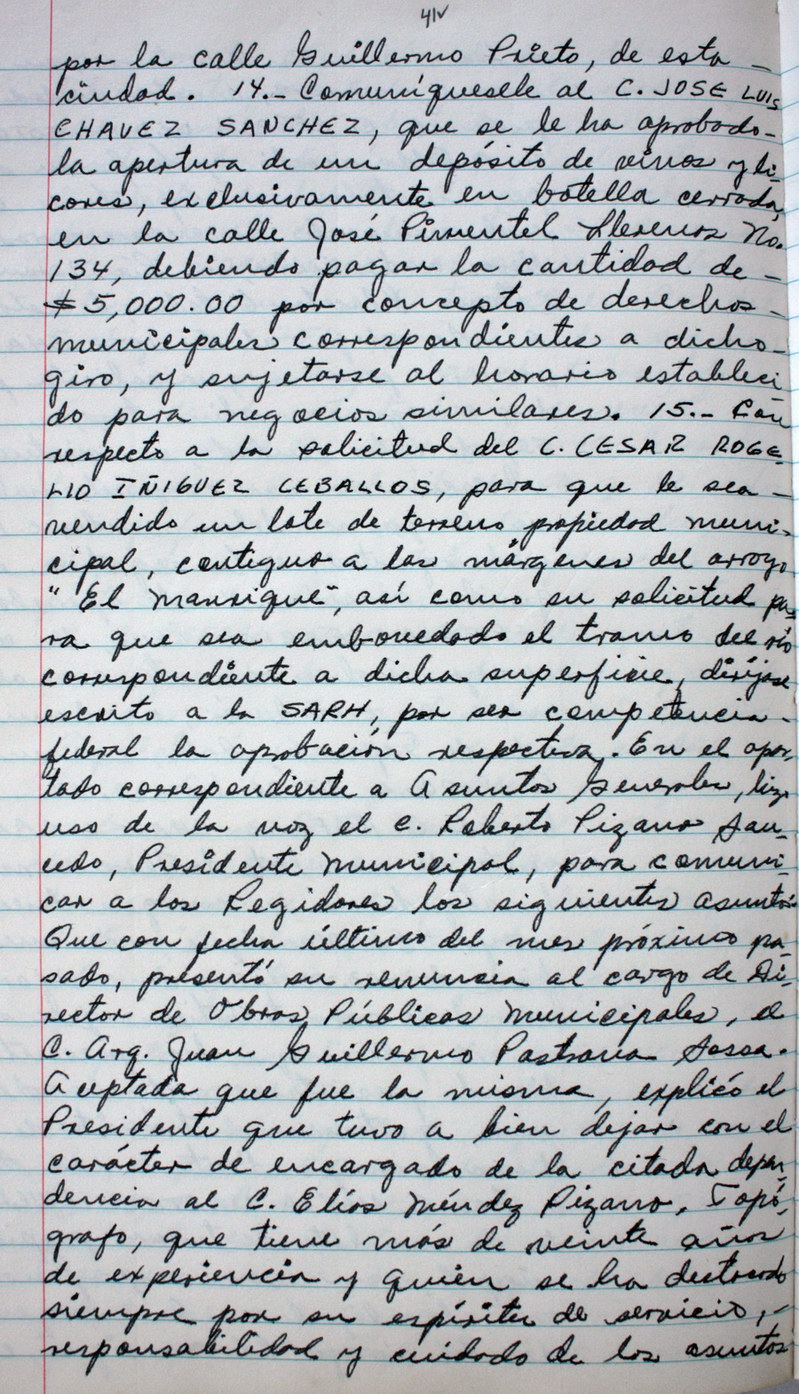 41v
por la calle Guillermo Prieto, de esta -
ciudad. 14.- Comuníquesele al C. JOSE LUIS
CHAVEZ SANCHEZ, que se le ha aprobado -
la apertura de un depósito de vinos y li-
cores, exclusivamente en botella cerrada,
en la calle José Pimentel Llerenas No.
134, debiendo pagar la cantidad de -
$5,000.00 por concepto de derechos -
municipales correspondientes a dicho -
giro, y sujetarse al horario estableci
do para negocios similares. 15.- Con
respecto a la solicitud del C. CESAR ROGE-
LIO IÑIGUEZ CEBALLOS, para que le sea -
vendido un lote de terreno propiedad muni-
cipal, contiguo a las márgenes del arroyo
"El Manrique", así como su solicitud pa-
ra que sea embovedado el tramo del río
correspondiente a dicha superficie, diríjase
escrito a la SARH, por ser competencia -
federal la aprobación respectiva. En el apar-
tado correspondiente a Asuntos Generales, hizo
uso de la voz el C. Roberto Pizano Sau-
cedo, Presidente Municipal, para comuni-
car a los Regidores los siguientes asuntos:
Que con fecha último del mes próximo pa-
sado, presentó su renuncia al cargo de Di-
rector de Obras Públicas Municipales, el
C. Arq. Juan Guillermo Pastrana Sossa.
Aceptada que fue la misma, explicó el
Presidente que tuvo a bien dejar con el
carácter de encargado de la citada depen
dencia al C. Elías Méndez Pizano, Topó-
grafo, que tiene más de veinte años
de experiencia y quien se ha destacado
siempre por su espíritu de servicio, -
responsabilidad y cuidado de los asuntos